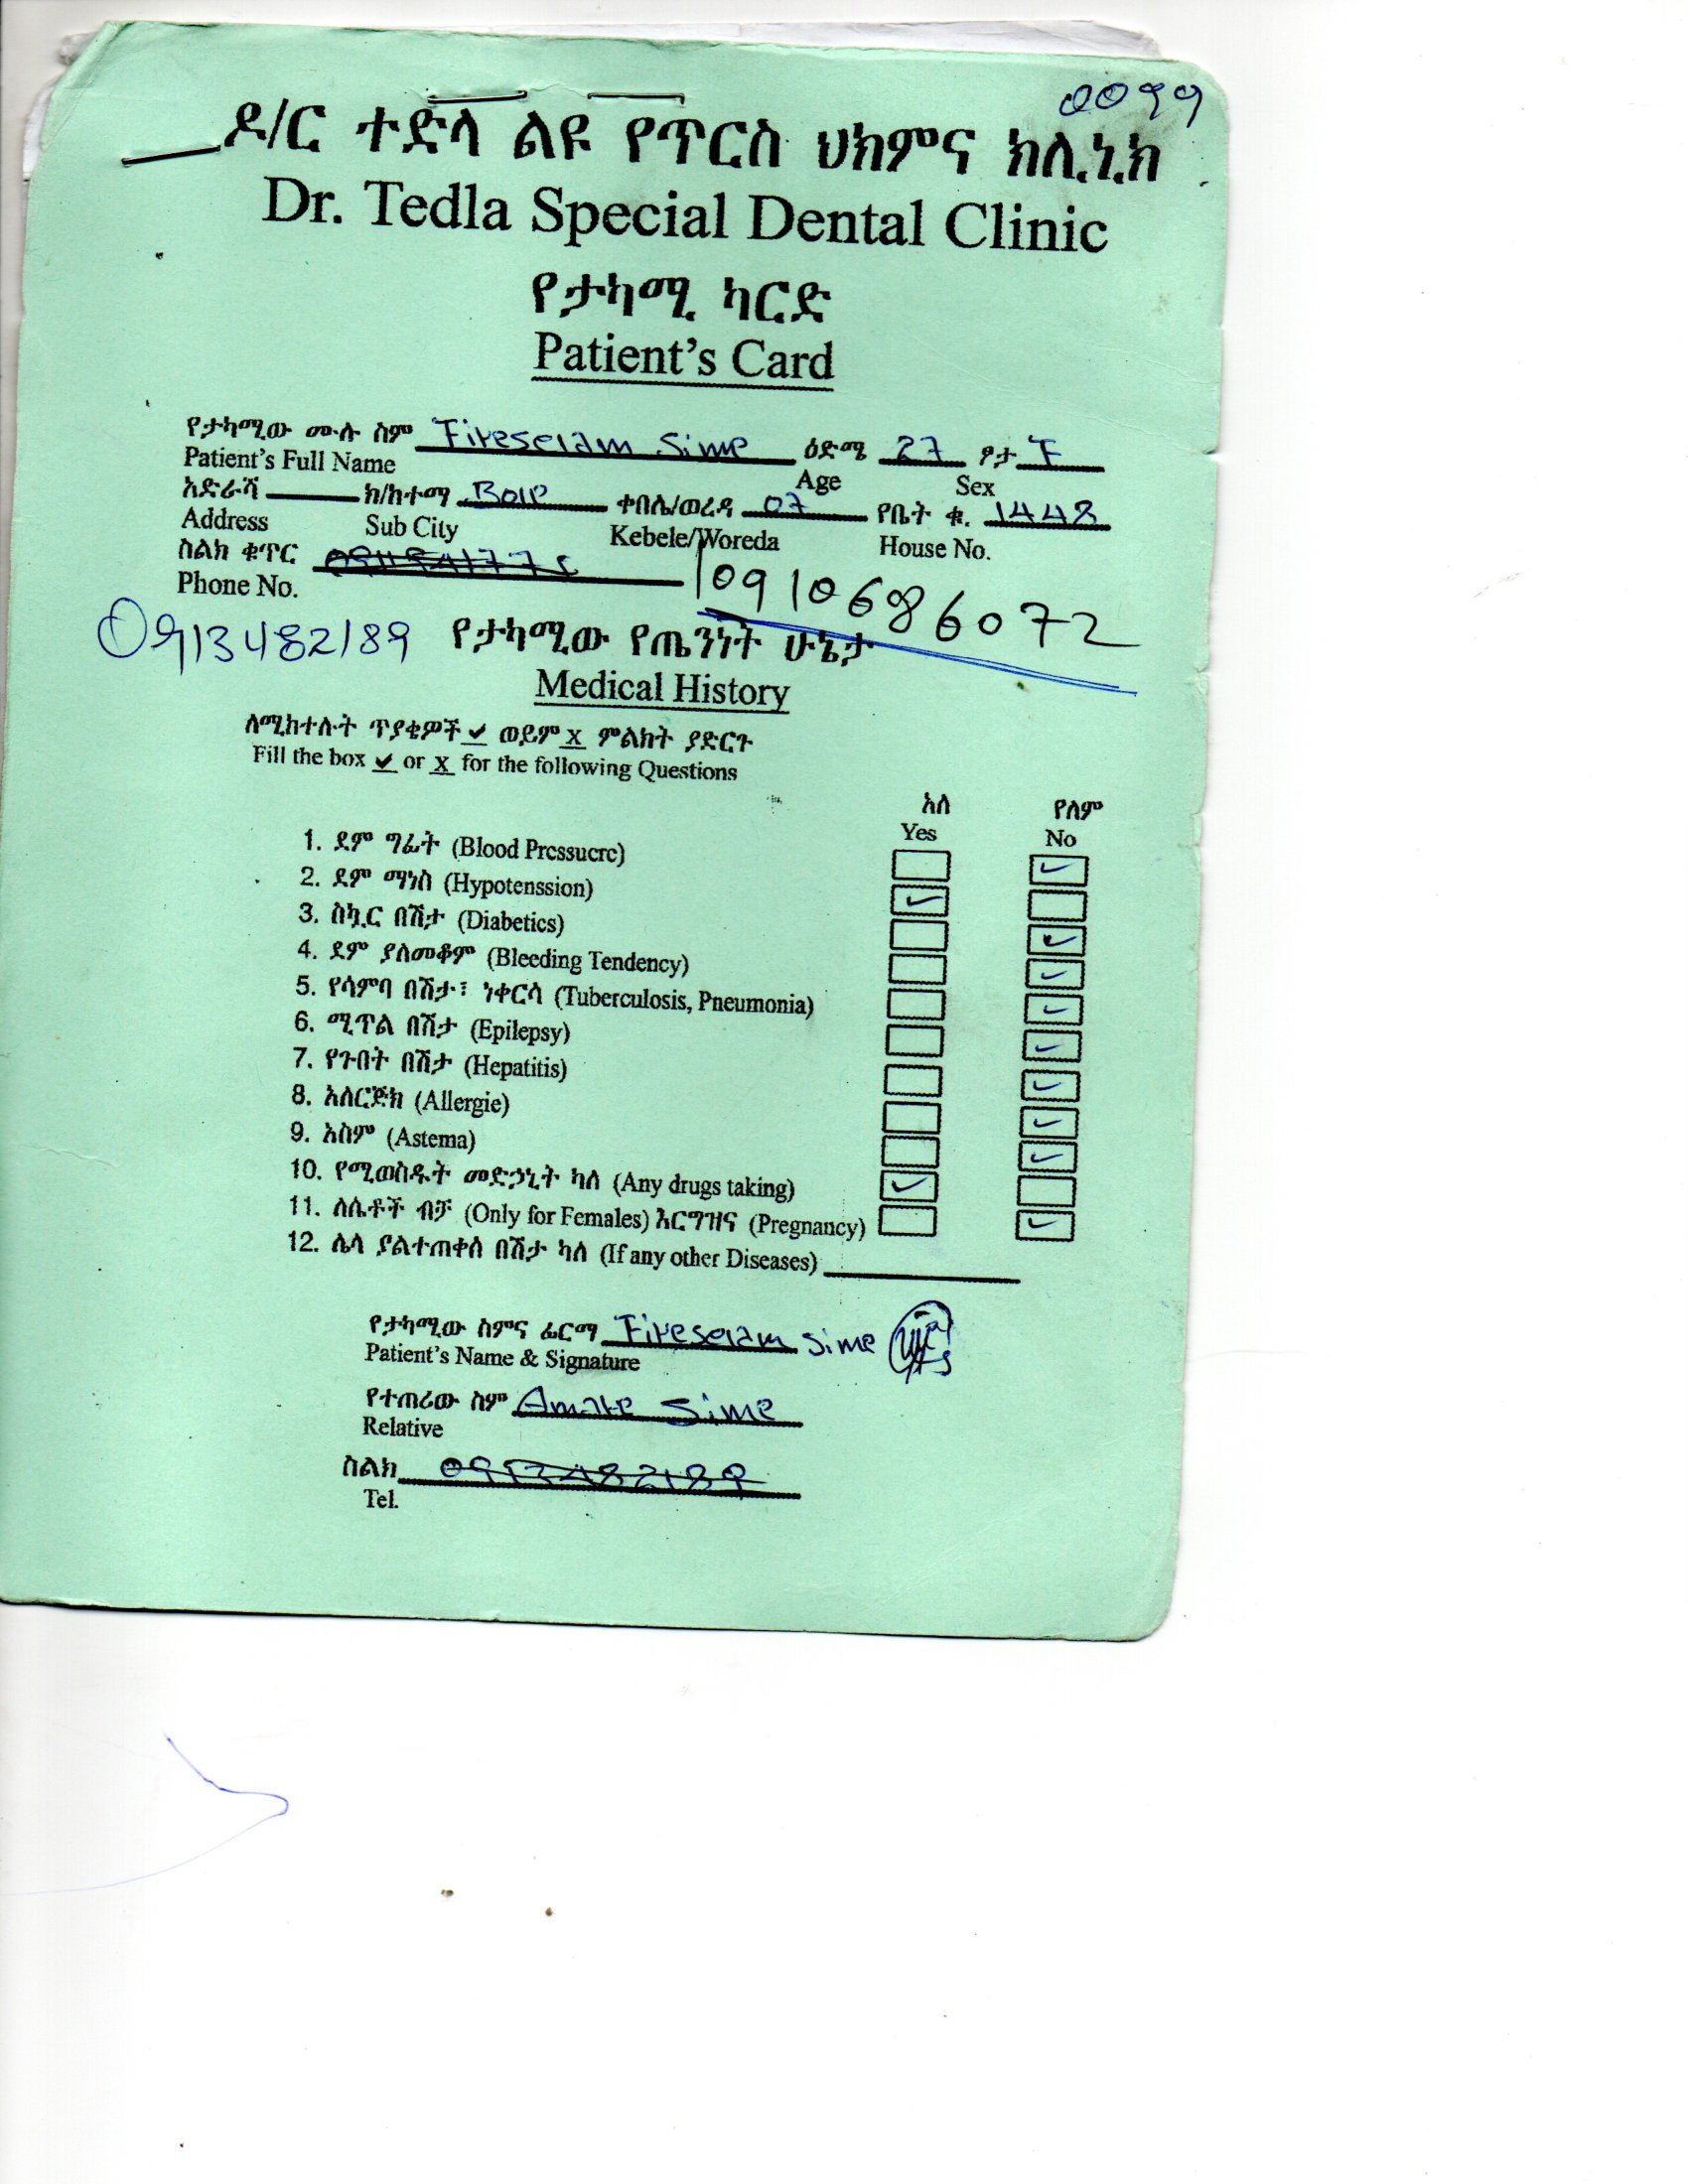 0099
ዶ/ር ተድላ ልዩ የጥርስ ህክምና ክሊኒክ
Dr. Tedla Special Dental Clinic
የታካሚ ካርድ
Patient's Card
የታካሚው ሙሉ ስም Fireselam Sime ዕድሜ 27 ፆታ F
Patient's Full Name Age Sex
አድራሻ ክ/ከተማ Bole ቀበሌ/ወረዳ 07 የቤት ቁ. 1448
Address Sub City Kebele/Woreda House No.
ስልክ ቁጥር
Phone No. 0910686072
0913482189 የታካሚው የጤንነት ሁኔታ
Medical History
ለሚከተሉት ጥያቄዎች ✓ ወይም x ምልክት ያድርጉ
Fill the box ✓ or x for the following Questions
አለ የለም
Yes No
1. ደም ግፊት (Blood Pressuere) ✓
2. ደም ማነስ (Hypotenssion) ✓
3. ስኳር በሽታ (Diabetics) ✓
4. ደም ያለመቆም (Bleeding Tendency) ✓
5. የሳምባ በሽታ፣ ነቀርሳ (Tuberculosis, Pneumonia) ✓
6. ሚጥል በሽታ (Epilepsy) ✓
7. የጉበት በሽታ (Hepatitis) ✓
8. አለርጅክ (Allergie) ✓
9. አስም (Astema) ✓
10. የሚወስዱት መድኃኒት ካለ (Any drugs taking) ✓
11. ለሴቶች ብቻ (Only for Females) እርግዝና (Pregnancy) ✓
12. ሌላ ያልተጠቀሰ በሽታ ካለ (If any other Diseases)
የታካሚው ስምና ፊርማ Fireselam Sime
Patient's Name & Signature
የተጠሪው ስም Amare Sime
Relative
ስልክ 0913482189
Tel.